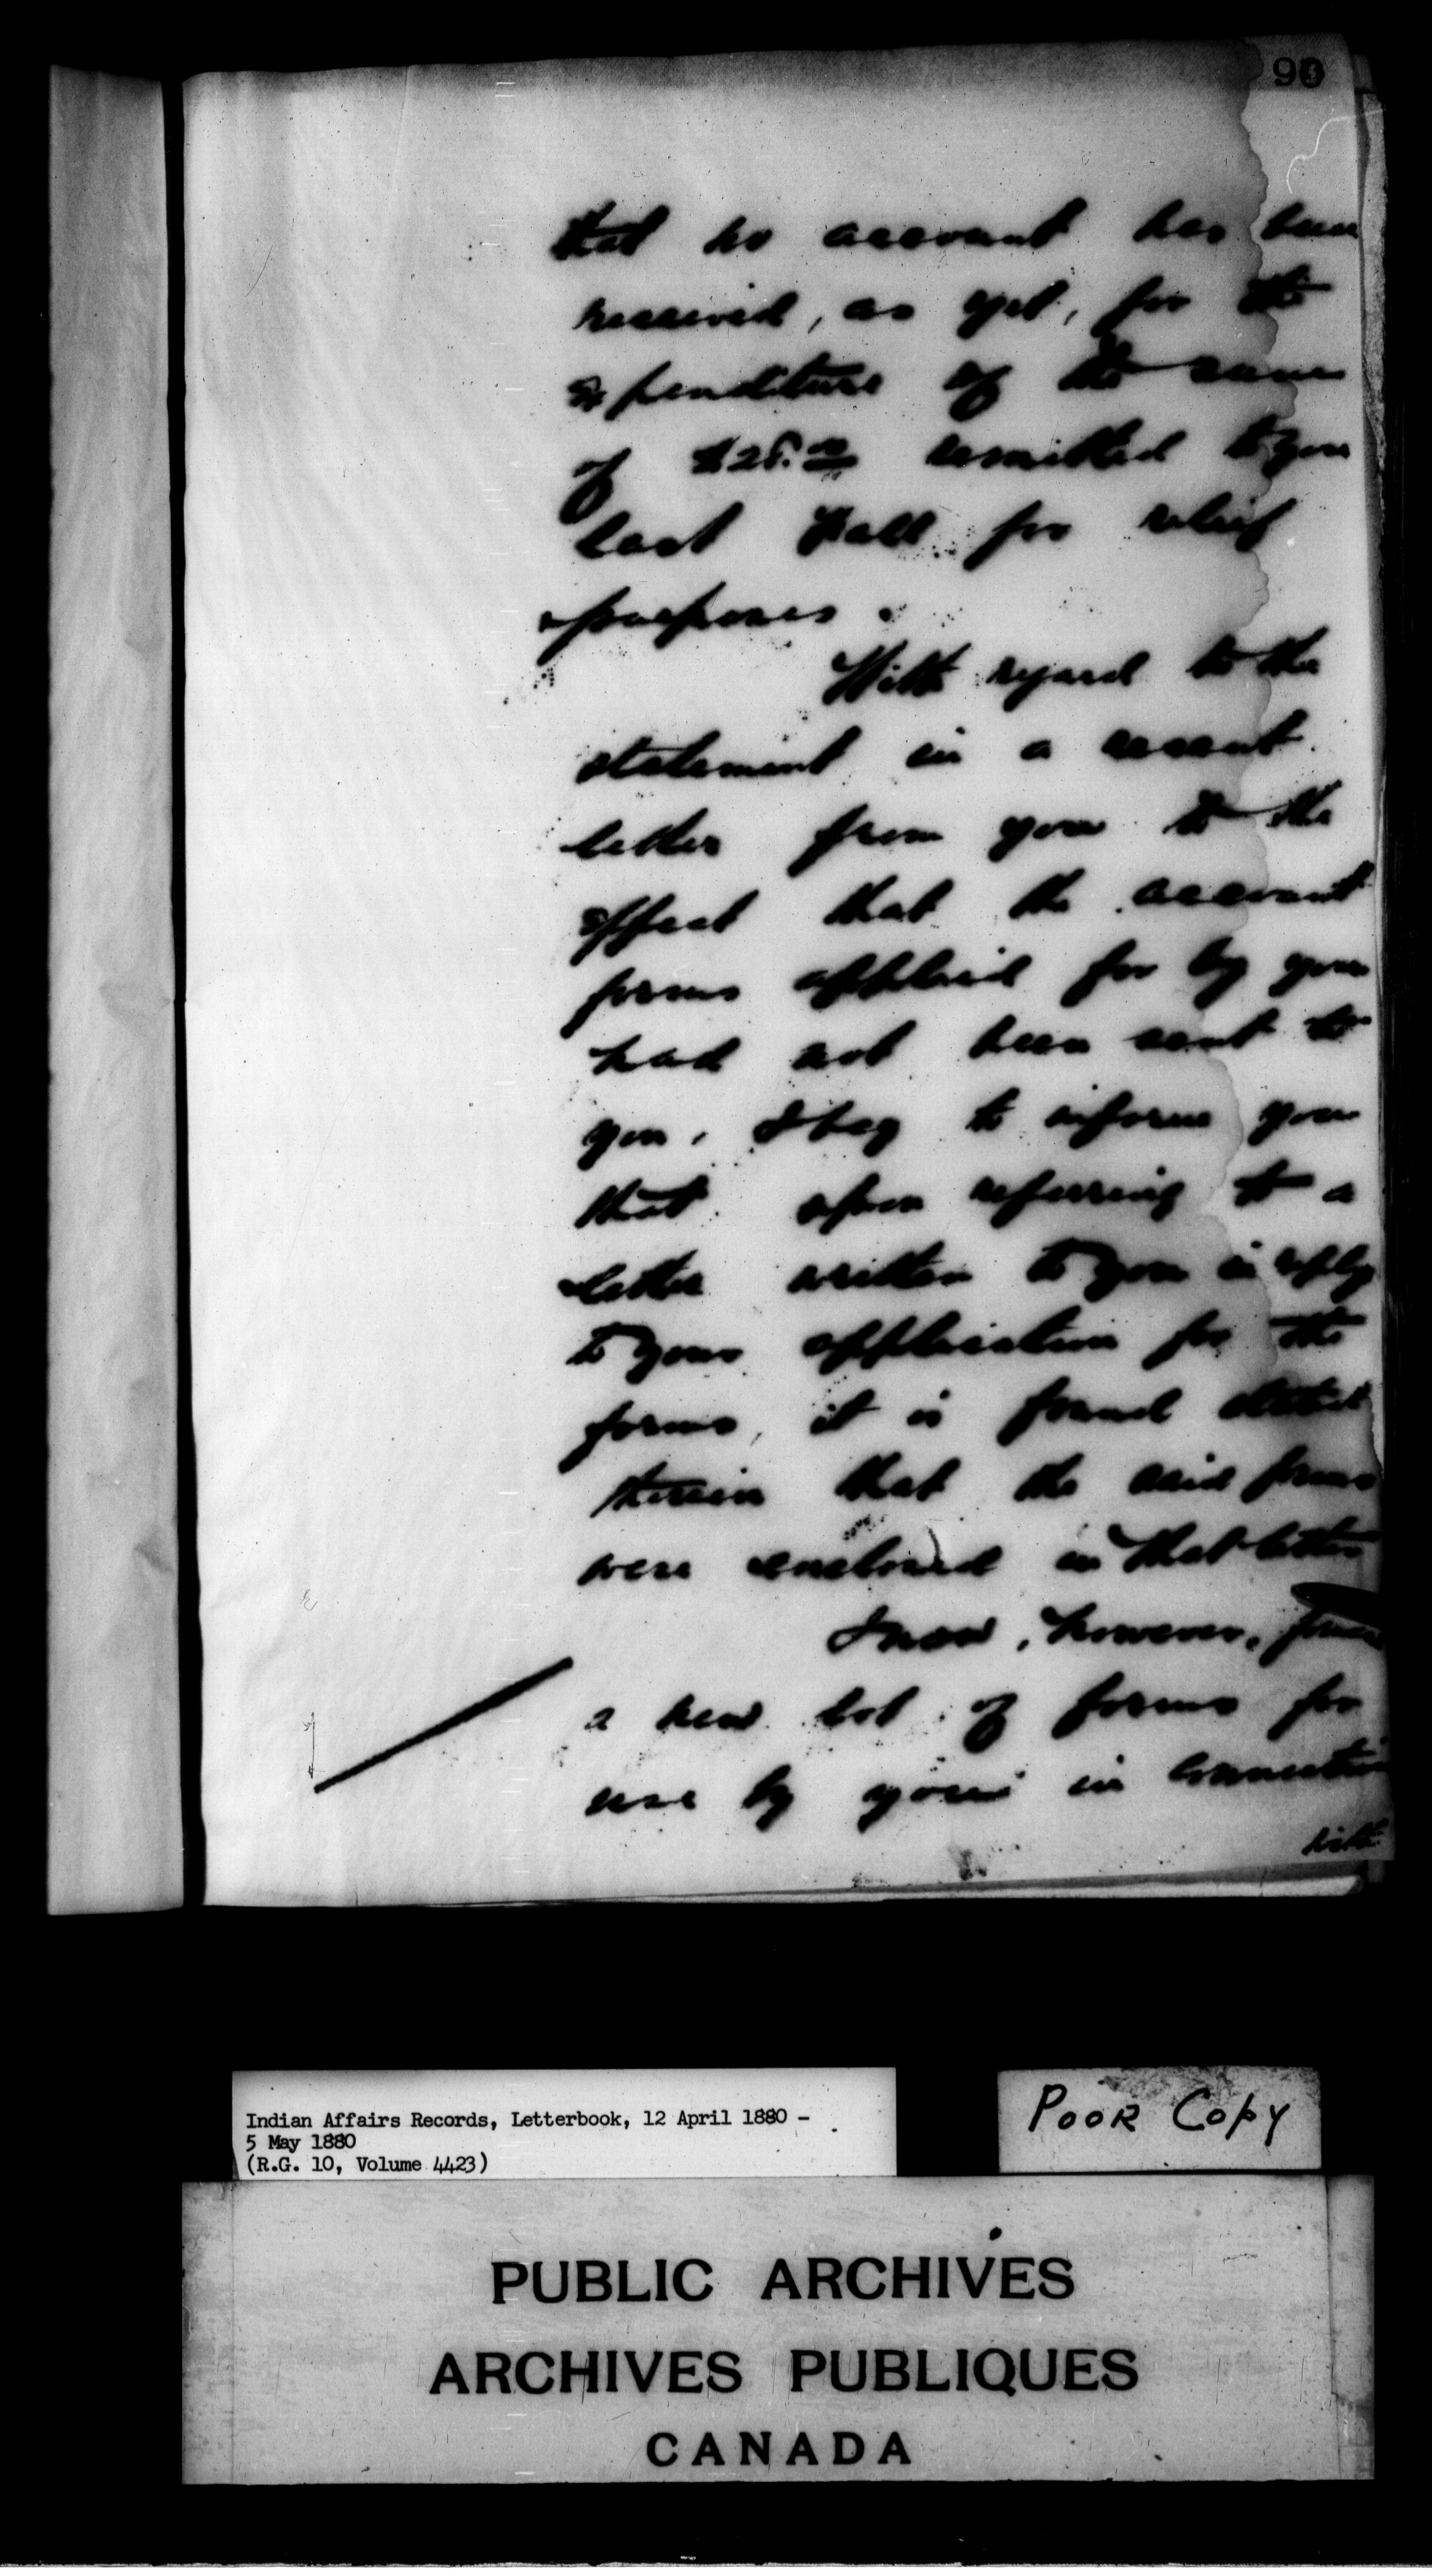 that no account has been
received, as yet, for the
expenditure of the sum
of $25.00 remitted to you
last Fall for relief
purposes.
With regard to the
statement in a recent
letter from you to the
effect that the account
forms applied for by you
had not been sent to
you, I beg to inform you
that upon referring to a
letter written to you in reply
to your application for the
forms, it is found stated
therein that the said forms
were enclosed in that letter
I now, however,
a new lot of forms for
use by you in connection
with
Indian Affairs Records, Letterbook, 12 April 1880 -
5 May 1880
(R.G. 10, Volume 4423)
POOR COPY
PUBLIC ARCHIVES
ARCHIVES PUBLIQUES
CANADA